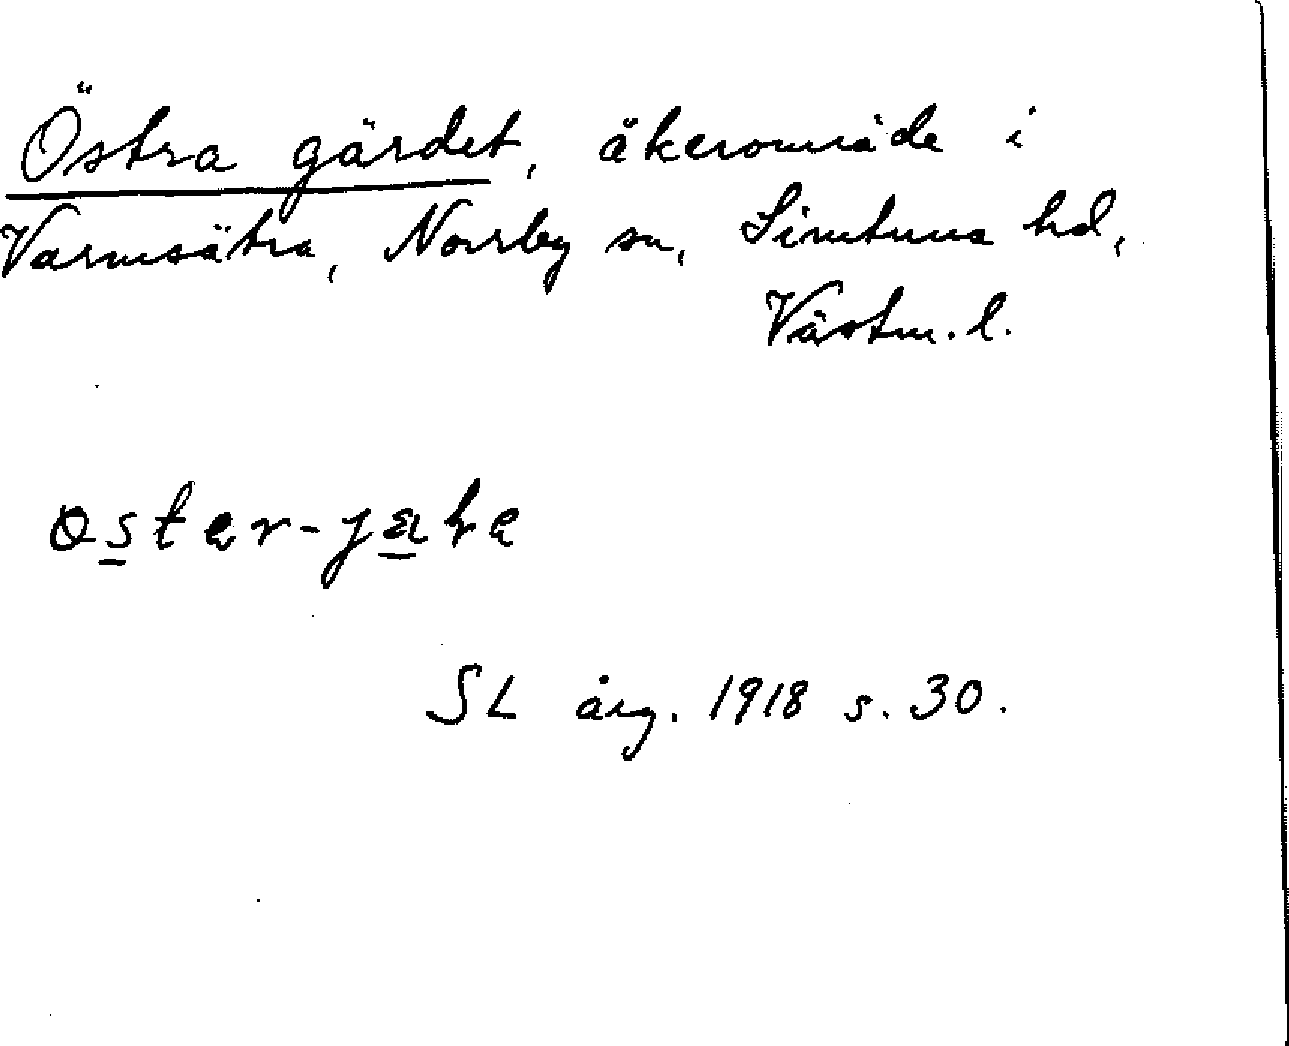 Östra gärdet, åkerområde i
Varmsätra, Norrby sn, Simtuna hd,
Västm. l.
SL årg. 1918 s. 30.